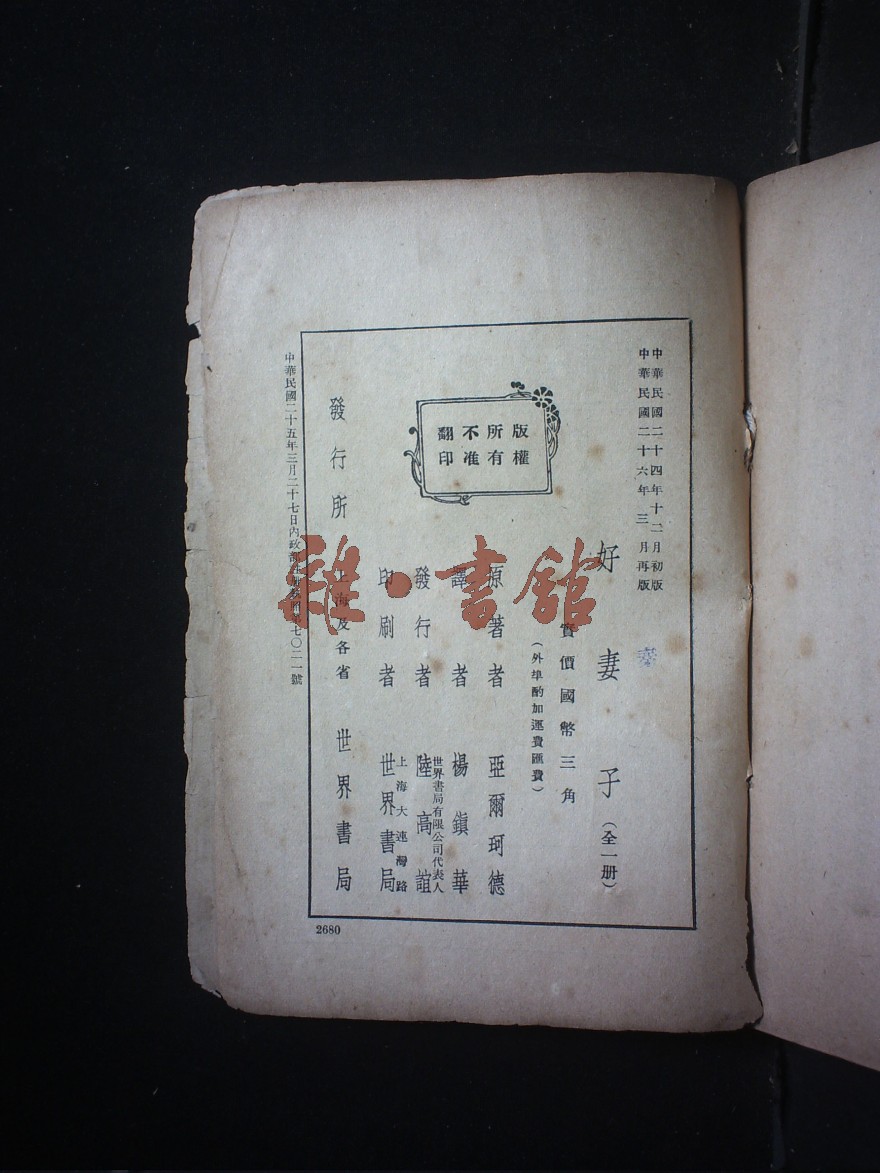 中華民國二十四年十二月初版
中華民國二十六年三月再版
好妻子(全一册)
實價國幣三角
(外埠酌加運費匯費)
原著者 亞爾珂德
譯者 楊鎮華
世界書局有限公司代表人
發行者 陸高誼
上海大連灣路
印刷者 世界書局
發行所 上海及各省 世界書局
版權
所有
不准
翻印
中華民國二十五年三月二十七日內政部
第七〇二一號
2680
雜·書館